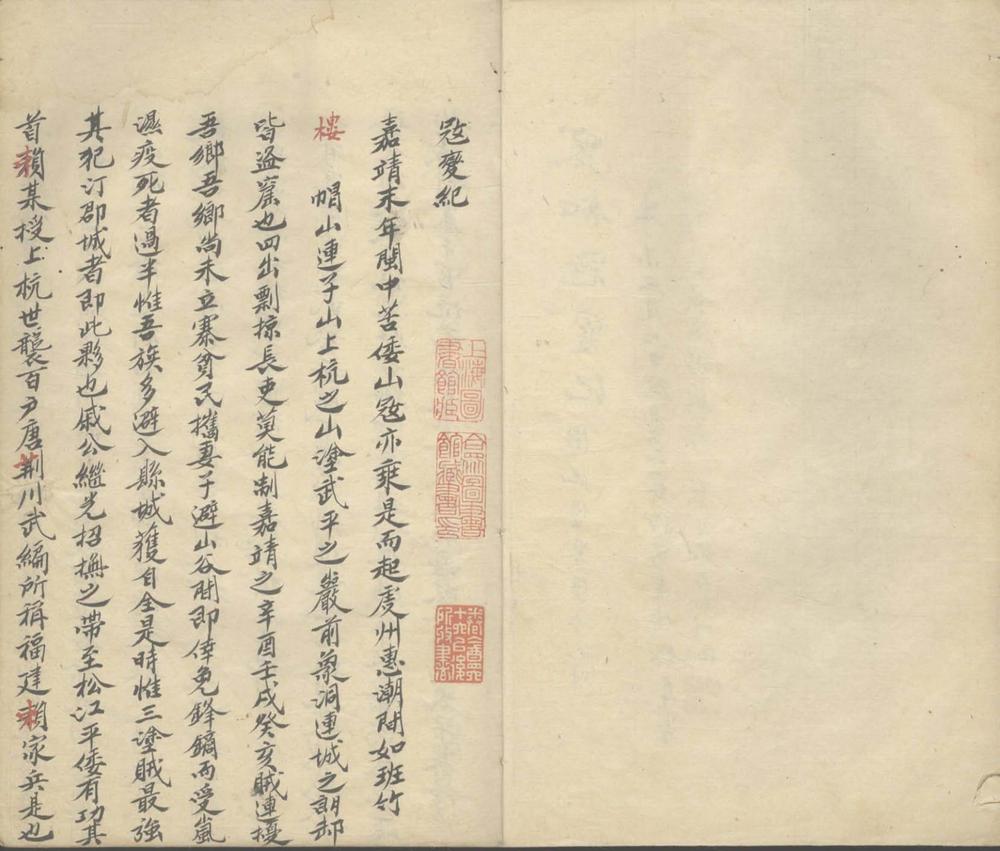 寇變紀
嘉靖末年閩中苦倭山寇亦乘是而起虔州惠潮間如班竹
樓 帽山連子山上杭之山塗武平之巖前象洞連城之朗邨
皆盜窟也四出剽掠長吏莫能制嘉靖之辛酉壬戌癸亥賊連擾
吾鄉吾鄉尚未立寨貧民攜妻子避山谷間即倖免鋒鏑而受嵐
濕疫死者過半惟吾族多避入縣城獲自全是時惟三塗賊最強
其犯汀郡城者即此夥也戚公繼光招撫之帶至松江平倭有功其
首賴某授上杭世襲百戶唐荊川武編所稱福建賴家兵是也
上海圖書館藏
合眾圖書館藏書印